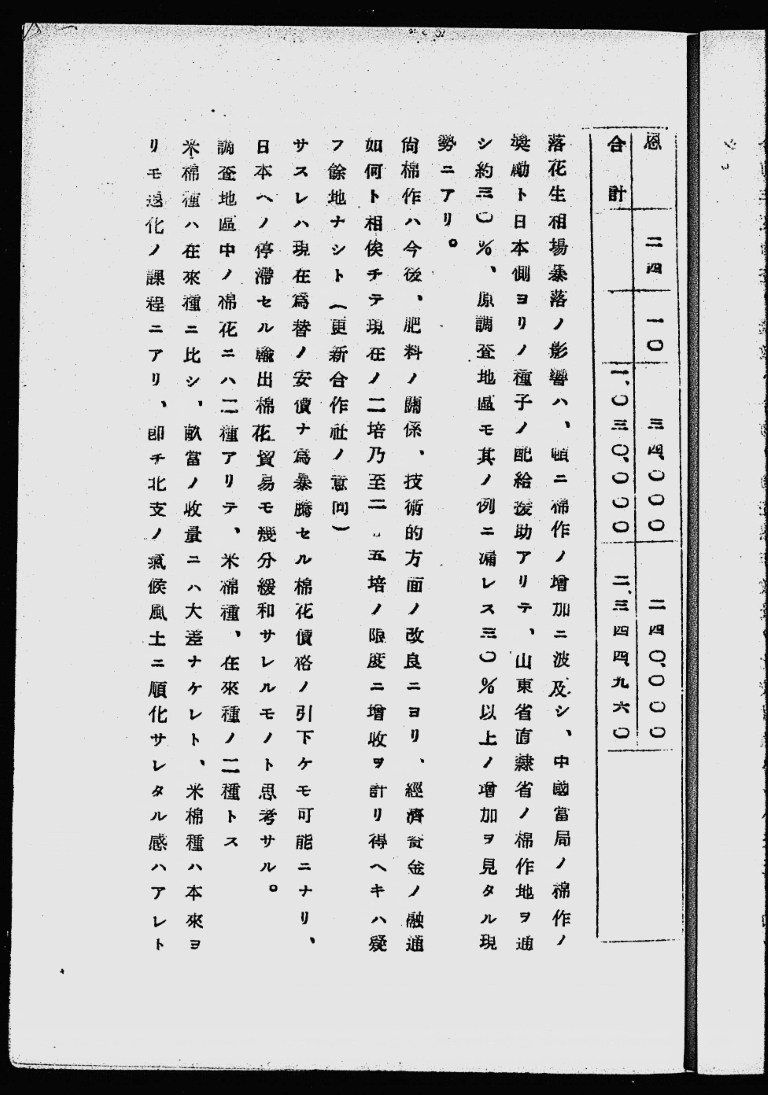 恩 二四 一〇 三四、〇〇〇 二四〇、〇〇〇
合計 一、〇三〇、〇〇〇 二、三四四、九六〇
落花生相場暴落ノ影響ハ、頓ニ棉作ノ增加ニ波及シ、中國當局ノ棉作ノ
奬勵ト日本側ヨリノ種子ノ配給援助アリテ、山東省直隷省ノ棉作地ヲ通
シ約三〇％、原調査地區モ其ノ例ニ漏レス三〇％以上ノ增加ヲ見タル現
勢ニアリ。
尙棉作ハ今後、肥料ノ關係、技術的方面ノ改良ニヨリ、經濟資金ノ融通
如何ト相俟チテ現在ノ二培乃至二．五培ノ限度ニ增收ヲ計リ得ヘキハ疑
フ餘地ナシト（更新合作社ノ意向）
サスレハ現在爲替ノ安價ナ爲暴騰セル棉花價格ノ引下ケモ可能ニナリ、
日本ヘノ停滯セル輸出棉花貿易モ幾分緩和サレルモノト思考サル。
調査地區中ノ棉花ニハ二種アリテ、米棉種、在來種ノ二種トス
米棉種ハ在來種ニ比シ、畝當ノ收量ニハ大差ナケレト、米棉種ハ本來ヨ
リモ退化ノ課程ニアリ、卽チ北支ノ氣候風土ニ順化サレタル感ハアレト